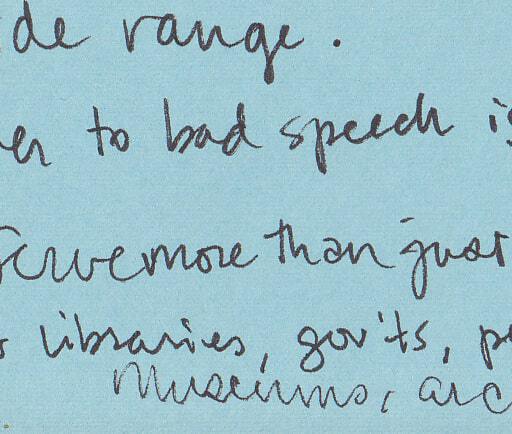 ide range.
er to bad speech is
serve more than just
libraries, gov'ts, pe
museums, arc